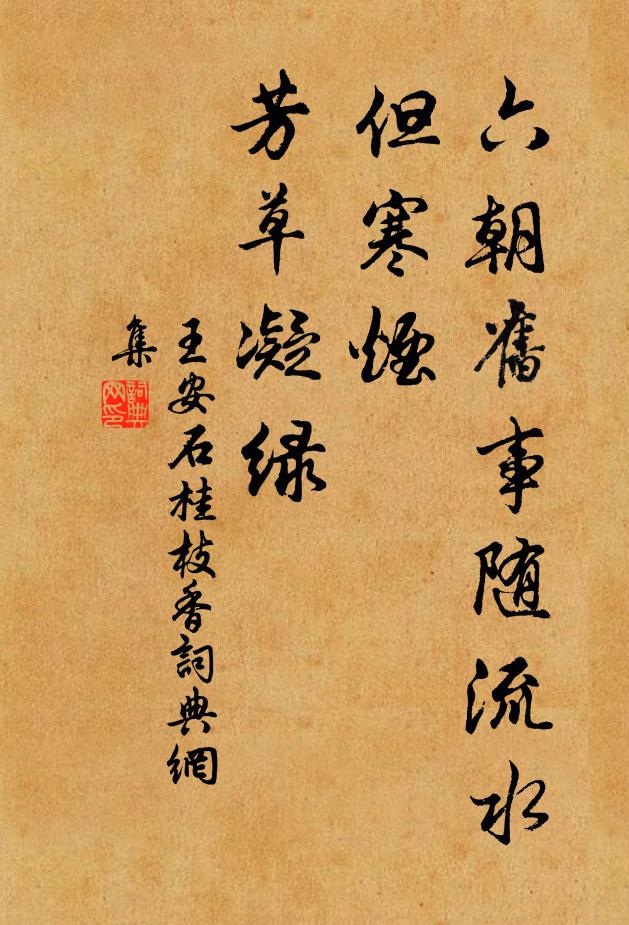 六朝舊事随流水
但寒煙
芳草凝绿
王安石桂枝香詞典網
集
詞典網印